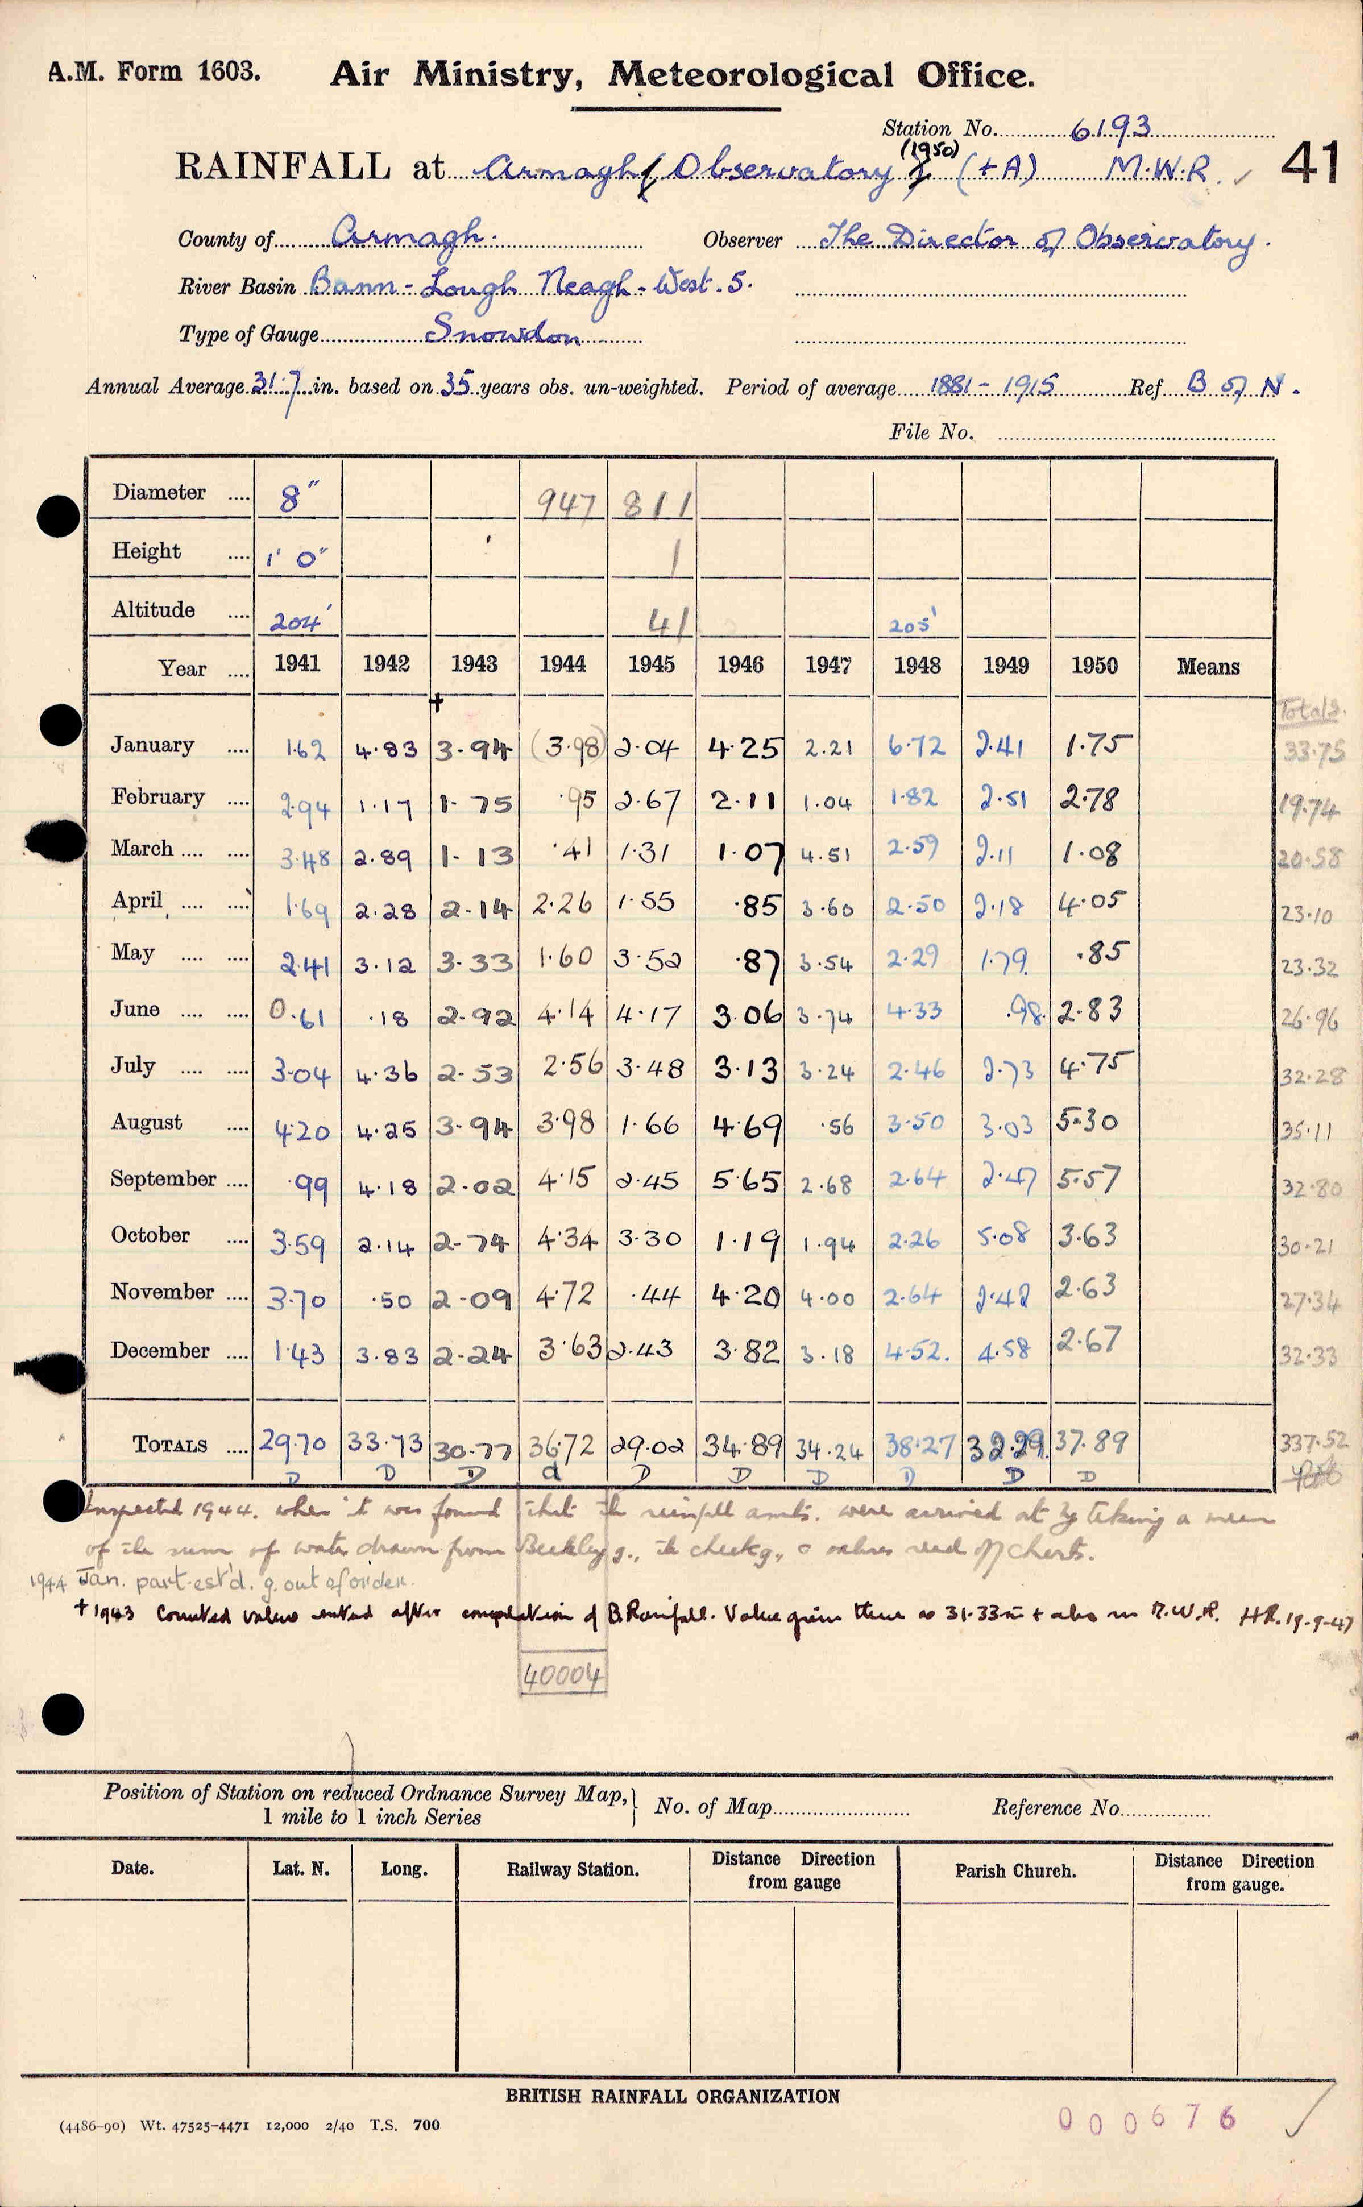 A.M. Form 1603. Air Ministry, Meteorological Office.
Station No. 6193
(1950)
RAINFALL at Armagh ( Observatory ) (+A) M.W.R. ✓ 41
County of Armagh. Observer The Director of Observatory.
River Basin Bann - Lough Neagh - West. S.
Type of Gauge Snowdon
Annual Average 31.7 in. based on 35 years obs. un-weighted. Period of average 1881 - 1915 Ref. B of N.
File No.
Diameter .... 8" 947 811
Height .... 1' 0" 1
Altitude .... 204' 41 205'
Year .... 1941 1942 1943 1944 1945 1946 1947 1948 1949 1950 Means
+ Totals.
January .... 1.62 4.83 3.94 (3.98) 2.04 4.25 2.21 6.72 2.41 1.75 33.75
February .... 2.94 1.17 1.75 .95 2.67 2.11 1.04 1.82 2.51 2.78 19.74
March .... .... 3.48 2.89 1.13 .41 1.31 1.07 4.51 2.59 2.11 1.08 20.58
April .... .... 1.69 2.28 2.14 2.26 1.55 .85 3.60 2.50 2.18 4.05 23.10
May .... .... 2.41 3.12 3.33 1.60 3.52 .87 3.54 2.29 1.79 .85 23.32
June .... .... 0.61 .18 2.92 4.14 4.17 3.06 3.74 4.33 .98 2.83 26.96
July .... .... 3.04 4.36 2.53 2.56 3.48 3.13 3.24 2.46 2.73 4.75 32.28
August .... 4.20 4.25 3.94 3.98 1.66 4.69 .56 3.50 3.03 5.30 35.11
September .... .99 4.18 2.02 4.15 2.45 5.65 2.68 2.64 2.47 5.57 32.80
October .... 3.59 2.14 2.74 4.34 3.30 1.19 1.94 2.26 5.08 3.63 30.21
November .... 3.70 .50 2.09 4.72 .44 4.20 4.00 2.64 2.42 2.63 27.34
December .... 1.43 3.83 2.24 3.63 2.43 3.82 3.18 4.52. 4.58 2.67 32.33
TOTALS .... 29.70 33.73 30.77 36.72 29.02 34.89 34.24 38.27 32.29. 37.89 337.52
D D D d D D D D D D
Inspected 1944. when it was found that the rainfall amts. were arrived at by taking a mean
of the sum of water drawn from Beckley g., the check g., & values read off charts.
1944 Jan. part est'd. g. out of order.
+ 1943 Corrected values entered after completion of B. Rainfall. Value given there as 31.33 in + also in M.W.R. HR. 19-9-47
40004
Position of Station on reduced Ordnance Survey Map, No. of Map Reference No.
1 mile to 1 inch Series
Date. Lat. N. Long. Railway Station. Distance Direction from gauge Parish Church. Distance Direction from gauge.
BRITISH RAINFALL ORGANIZATION
(4486-90) Wt. 47525-4471 12,000 2/40 T.S. 700
000676